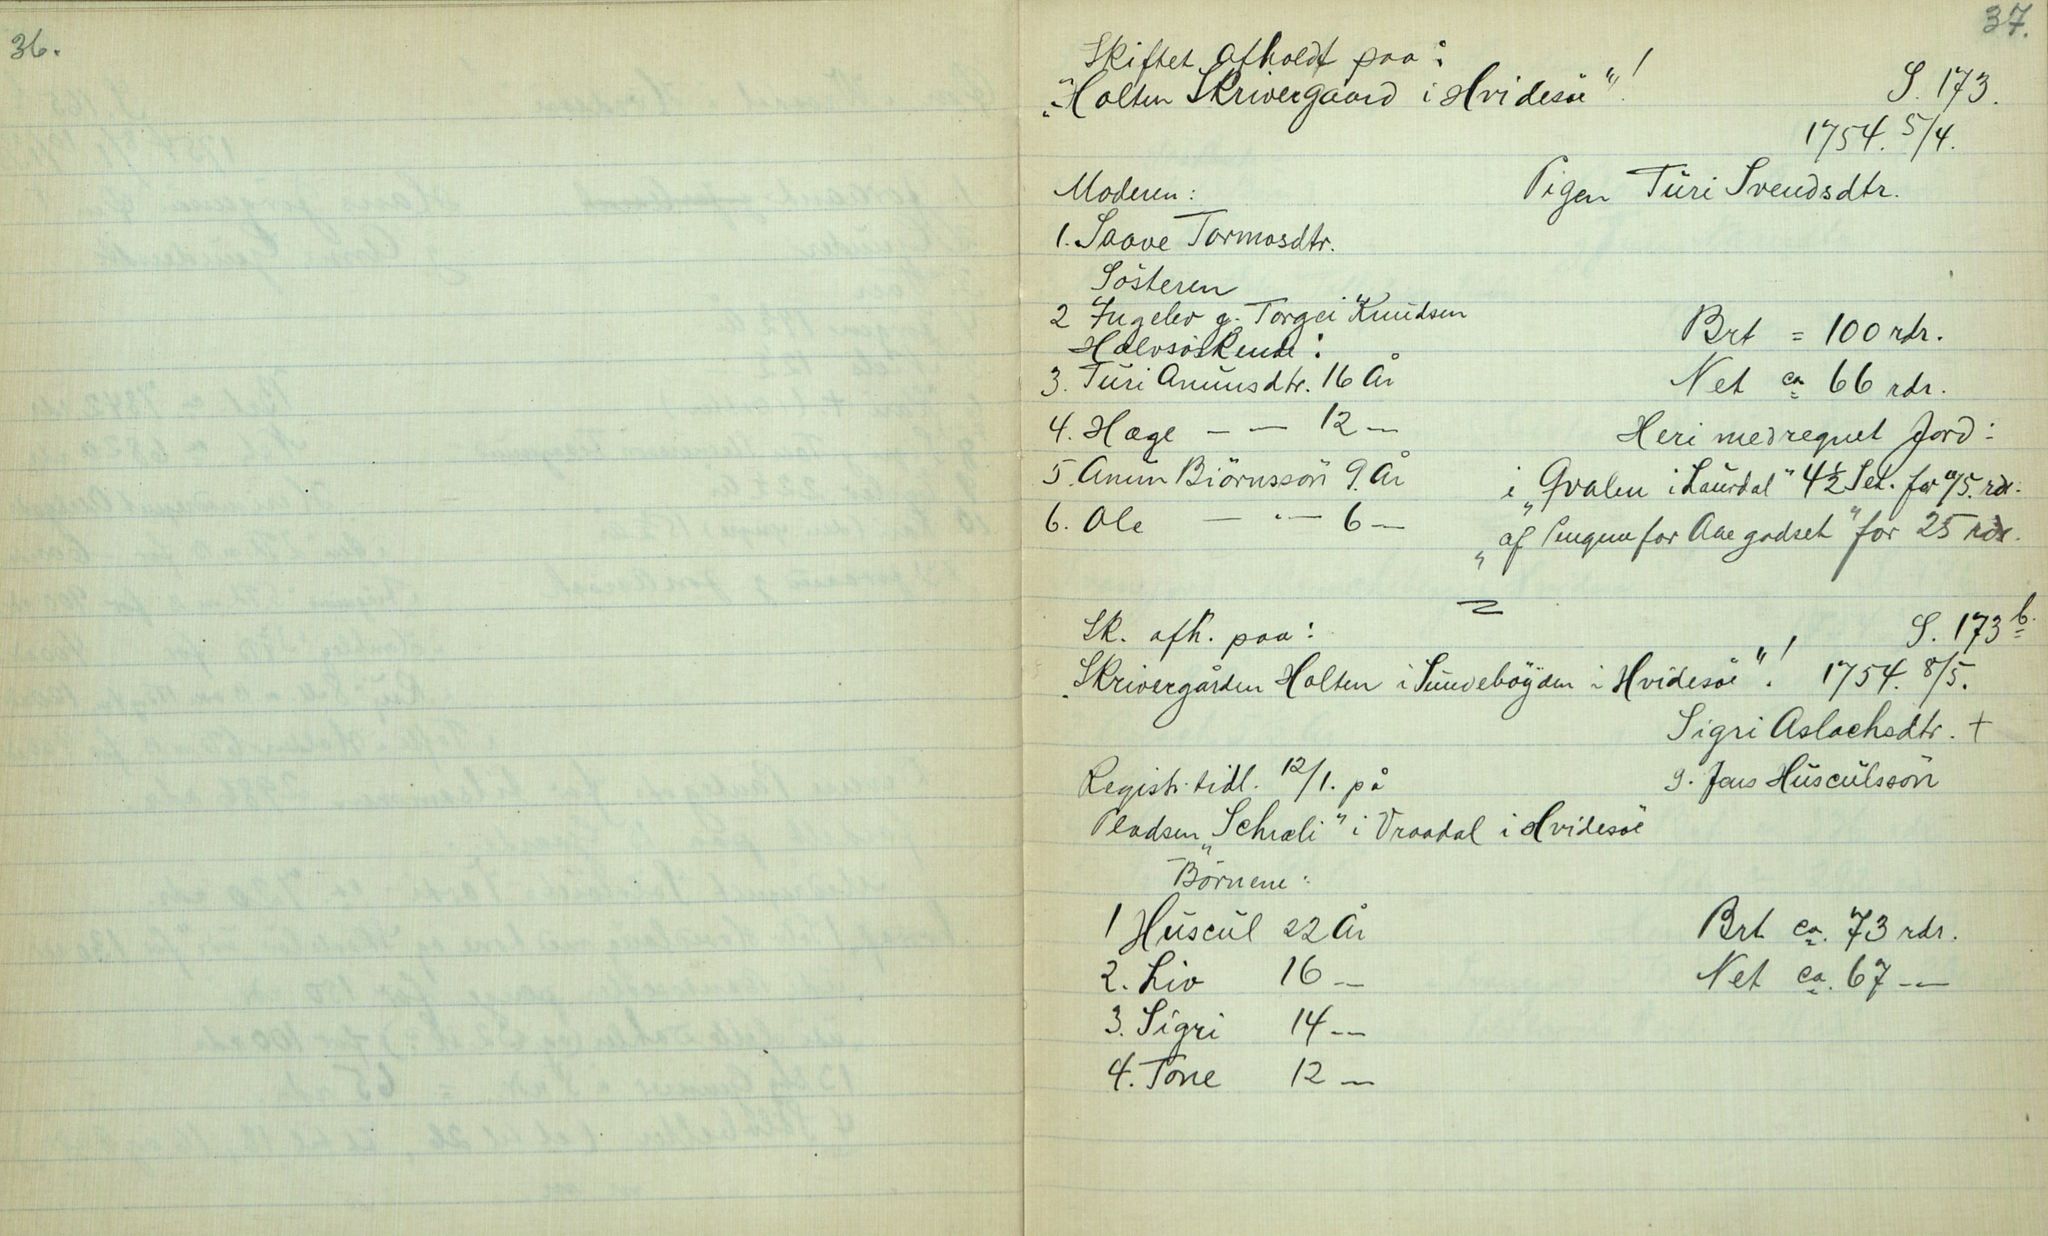 36.
37.
Skiftet afholdt paa:
"Holten Skrivergaard i Hvidesöe"!
S. 173.
1754. 5/4.
Moderen:
Pigen Turi Svendsdtr.
1. Saave Tormosdtr.
Sösteren
2 Ingelev g. Torgei Knudsen
Brt = 100 rdr.
Halvsöskende:
3. Turi Anunsdtr. 16 År
Net ca 66 rdr.
4. Hæge — — 12 —
Heri medregnet Jord:
5. Anun Biörnssön 9. År
i "Qvalen i Laurdal" 4½ Set. for 75. rdr.
6. Ole — — 6 —
"af Pengene for Aae godset" for 25 rdr.
Sk. afh. paa:
S. 173 b.
"Skrivergården Holten i Sundebögden i Hvidesöe"! 1754. 8/5.
Sigri Aslachsdtr. +
Registr. tidl. 12/1. på
g. Jens Husculssön
Pladsen "Schræli" i Vraadal i Hvidesöe
Börnene:
1 Huscul 22 År
Brt ca. 73 rdr.
2. Liv 16 —
Net ca. 67 —
3. Sigri 14 —
4. Tone 12 —